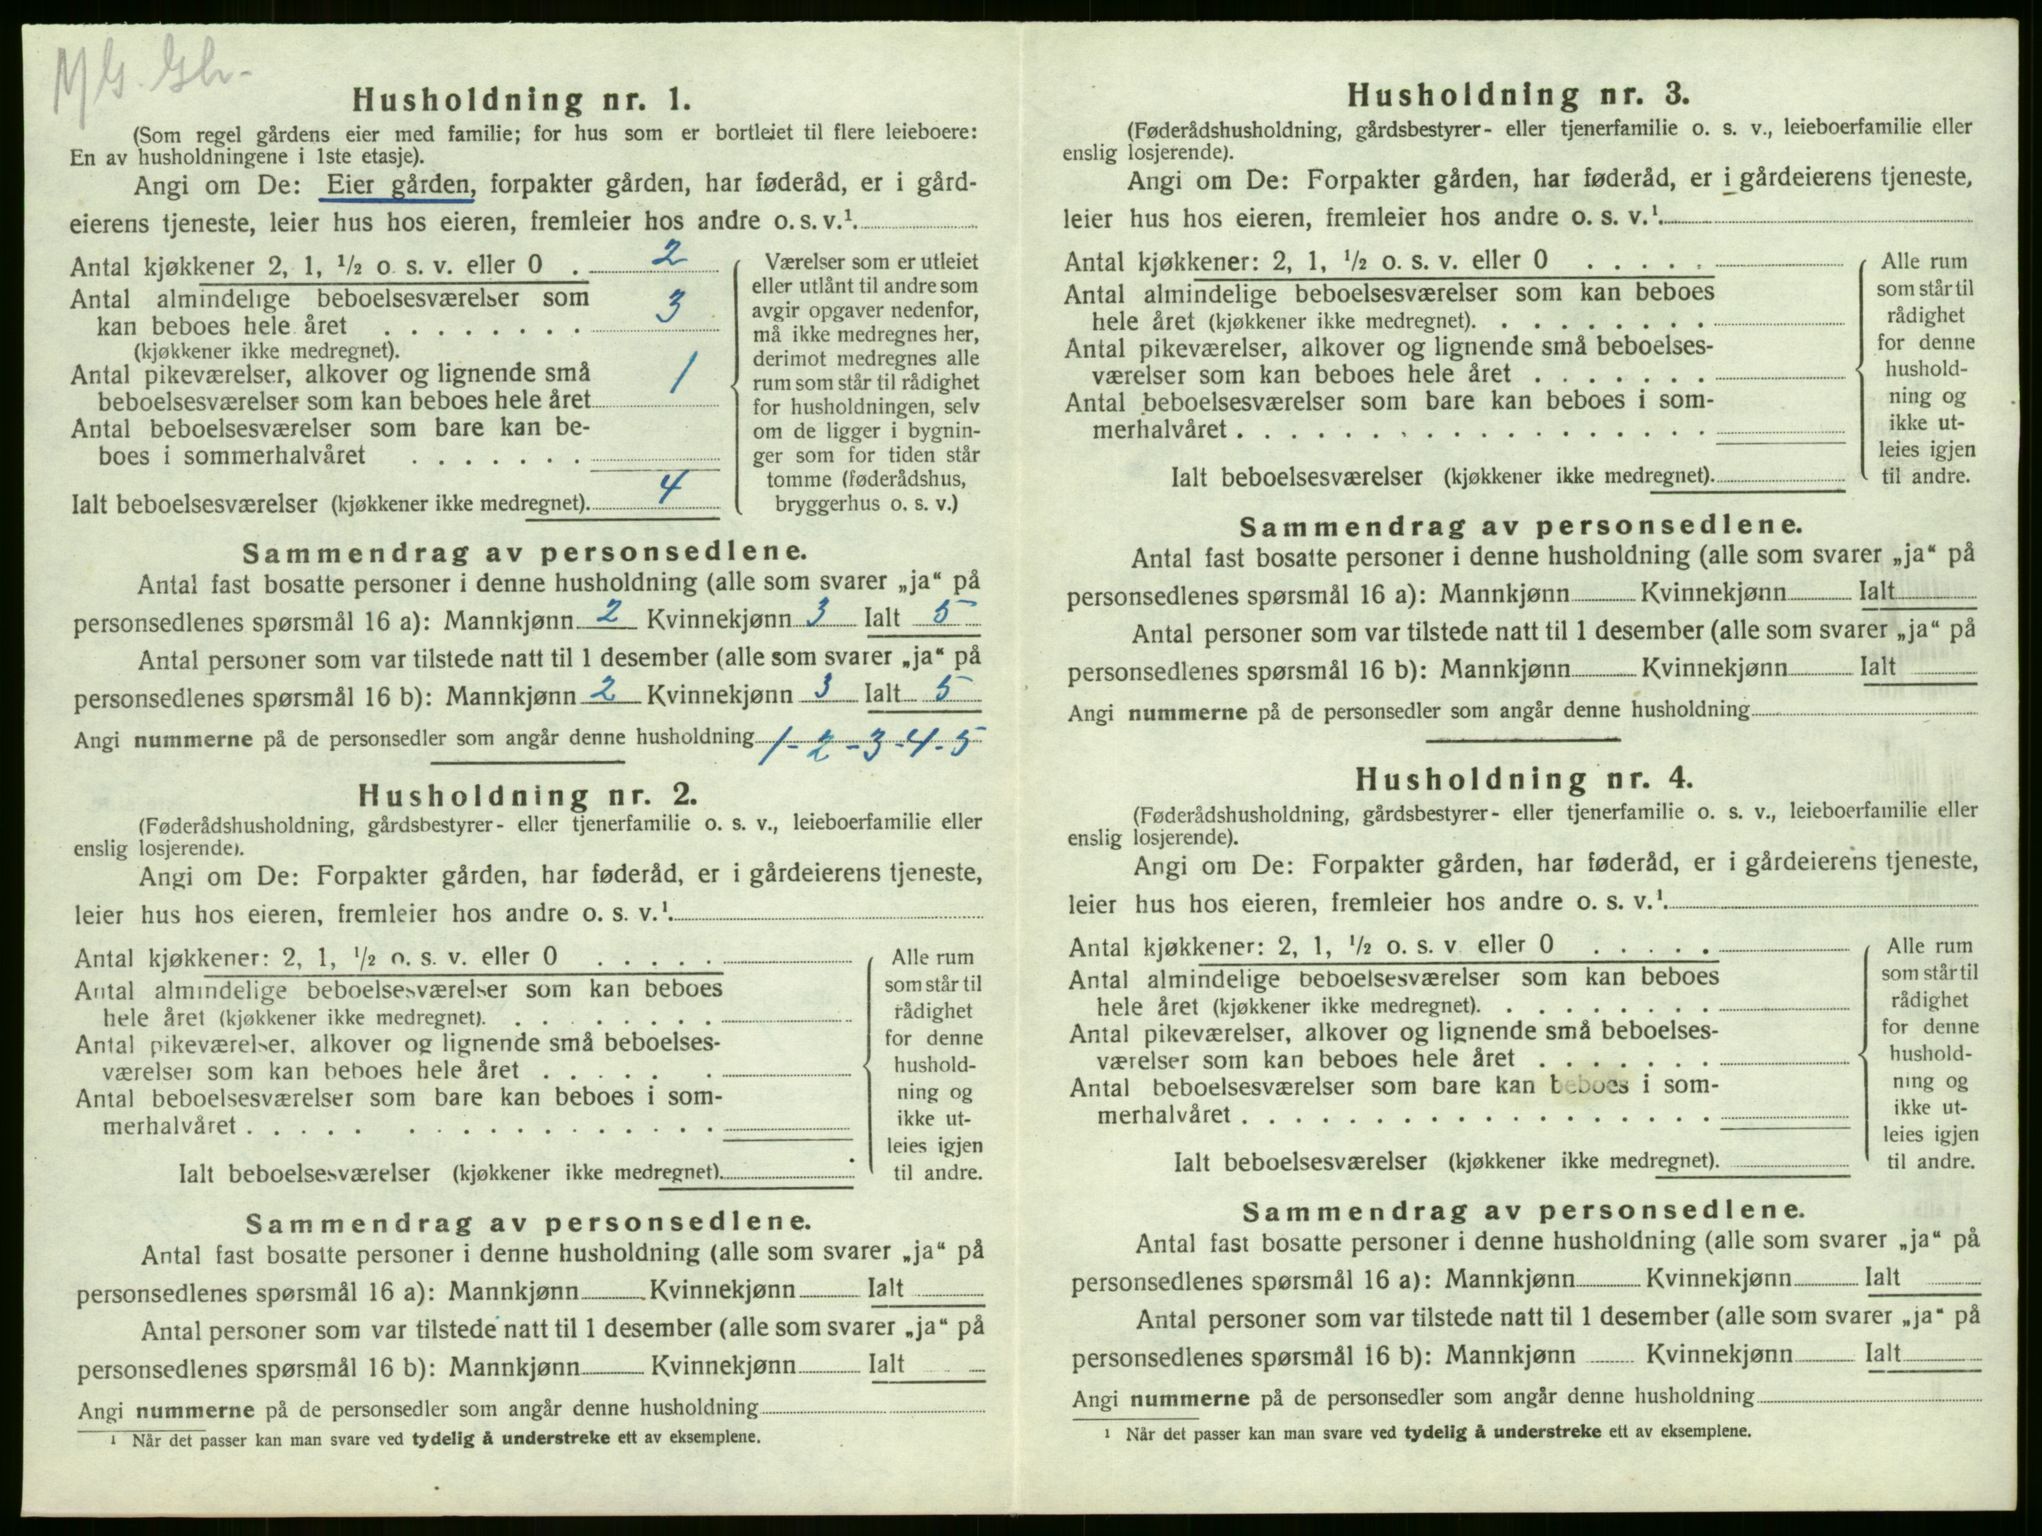 Husholdning nr. 1.
(Som regel gårdens eier med familie; for hus som er bortleiet til flere leieboere:
En av husholdningene i 1ste etasje).
Angi om De: Eier gården, forpakter gården, har føderåd, er i gård-
eierens tjeneste, leier hus hos eieren, fremleier hos andre o. s. v.¹
Antal kjøkkener 2, 1, ½ o. s. v. eller 0 . 2
Antal almindelige beboelsesværelser som
kan beboes hele året . . . . . . . . 3
(kjøkkener ikke medregnet).
Antal pikeværelser, alkover og lignende små
beboelsesværelser som kan beboes hele året 1
Antal beboelsesværelser som bare kan be-
boes i sommerhalvåret . . . . . . .
Ialt beboelsesværelser (kjøkkener ikke medregnet). 4
Værelser som er utleiet
eller utlånt til andre som
avgir opgaver nedenfor,
må ikke medregnes her,
derimot medregnes alle
rum som står til rådighet
for husholdningen, selv
om de ligger i bygnin-
ger som for tiden står
tomme (føderådshus,
bryggerhus o. s. v.)
Sammendrag av personsedlene.
Antal fast bosatte personer i denne husholdning (alle som svarer „ja“ på
personsedlenes spørsmål 16 a): Mannkjønn 2 Kvinnekjønn 3 Ialt 5
Antal personer som var tilstede natt til 1 desember (alle som svarer „ja“ på
personsedlenes spørsmål 16 b): Mannkjønn 2 Kvinnekjønn 3 Ialt 5
Angi nummerne på de personsedler som angår denne husholdning 1-2-3-4-5
Husholdning nr. 2.
(Føderådshusholdning, gårdsbestyrer- eller tjenerfamilie o. s. v., leieboerfamilie eller
enslig losjerende).
Angi om De: Forpakter gården, har føderåd, er i gårdeierens tjeneste,
leier hus hos eieren, fremleier hos andre o. s. v.¹
Antal kjøkkener: 2, 1, ½ o. s. v. eller 0 . . . . .
Antal almindelige beboelsesværelser som kan beboes
hele året (kjøkkener ikke medregnet). . . . . . . . .
Antal pikeværelser, alkover og lignende små beboelses-
værelser som kan beboes hele året . . . . . .
Antal beboelsesværelser som bare kan beboes i som-
merhalvåret . . . . . . . . . . . . . . . . . .
Ialt beboelsesværelser (kjøkkener ikke medregnet).
Alle rum
som står til
rådighet
for denne
hushold-
ning og
ikke ut-
leies igjen
til andre.
Sammendrag av personsedlene.
Antal fast bosatte personer i denne husholdning (alle som svarer „ja“ på
personsedlenes spørsmål 16 a): Mannkjønn Kvinnekjønn Ialt
Antal personer som var tilstede natt til 1 desember (alle som svarer „ja“ på
personsedlenes spørsmål 16 b): Mannkjønn Kvinnekjønn Ialt
Angi nummerne på de personsedler som angår denne husholdning
¹ Når det passer kan man svare ved tydelig å understreke ett av eksemplene.
Husholdning nr. 3.
(Føderådshusholdning, gårdsbestyrer- eller tjenerfamilie o. s. v., leieboerfamilie eller
enslig losjerende).
Angi om De: Forpakter gården, har føderåd, er i gårdeierens tjeneste,
leier hus hos eieren, fremleier hos andre o. s. v.¹
Antal kjøkkener: 2, 1, ½ o. s. v. eller 0 . . . . .
Antal almindelige beboelsesværelser som kan beboes
hele året (kjøkkener ikke medregnet). . . . . . . . .
Antal pikeværelser, alkover og lignende små beboelses-
værelser som kan beboes hele året . . . . . . .
Antal beboelsesværelser som bare kan beboes i som-
merhalvåret . . . . . . . . . . . . . . . . . .
Ialt beboelsesværelser (kjøkkener ikke medregnet).
Alle rum
som står til
rådighet
for denne
hushold-
ning og
ikke ut-
leies igjen
til andre.
Sammendrag av personsedlene.
Antal fast bosatte personer i denne husholdning (alle som svarer „ja“ på
personsedlenes spørsmål 16 a): Mannkjønn Kvinnekjønn Ialt
Antal personer som var tilstede natt til 1 desember (alle som svarer „ja“ på
personsedlenes spørsmål 16 b): Mannkjønn Kvinnekjønn Ialt
Angi nummerne på de personsedler som angår denne husholdning
Husholdning nr. 4.
(Føderådshusholdning, gårdsbestyrer- eller tjenerfamilie o. s. v., leieboerfamilie eller
enslig losjerende).
Angi om De: Forpakter gården, har føderåd, er i gårdeierens tjeneste,
leier hus hos eieren, fremleier hos andre o. s. v.¹
Antal kjøkkener: 2, 1, ½ o. s. v eller 0 . . . . .
Antal almindelige beboelsesværelser som kan beboes
hele året (kjøkkener ikke medregnet). . . . . . . . .
Antal pikeværelser, alkover og lignende små beboelses-
værelser som kan beboes hele året . . . . . . .
Antal beboelsesværelser som bare kan beboes i som-
merhalvåret . . . . . . . . . . . . . . . . . .
Ialt beboelsesværelser (kjøkkener ikke medregnet).
Alle rum
som står til
rådighet
for denne
hushold-
ning og
ikke ut-
leies igjen
til andre.
Sammendrag av personsedlene.
Antal fast bosatte personer i denne husholdning (alle som svarer „ja“ på
personsedlenes spørsmål 16 a): Mannkjønn Kvinnekjønn Ialt
Antal personer som var tilstede natt til 1 desember (alle som svarer „ja“ på
personsedlenes spørsmål 16 b): Mannkjønn Kvinnekjønn Ialt
Angi nummerne på de personsedler som angår denne husholdning
¹ Når det passer kan man svare ved tydelig å understreke ett av eksemplene.